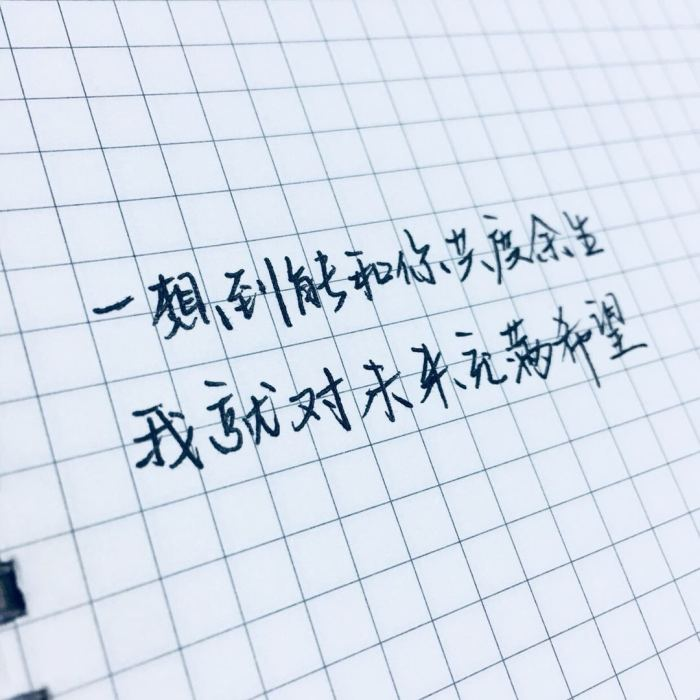 一想到能和你共度余生
我就对未来充满希望